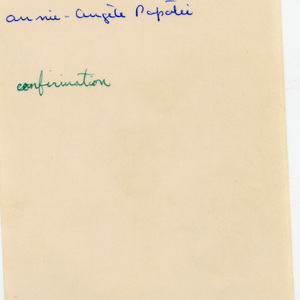 annie-Angèle Papatie
confirmation